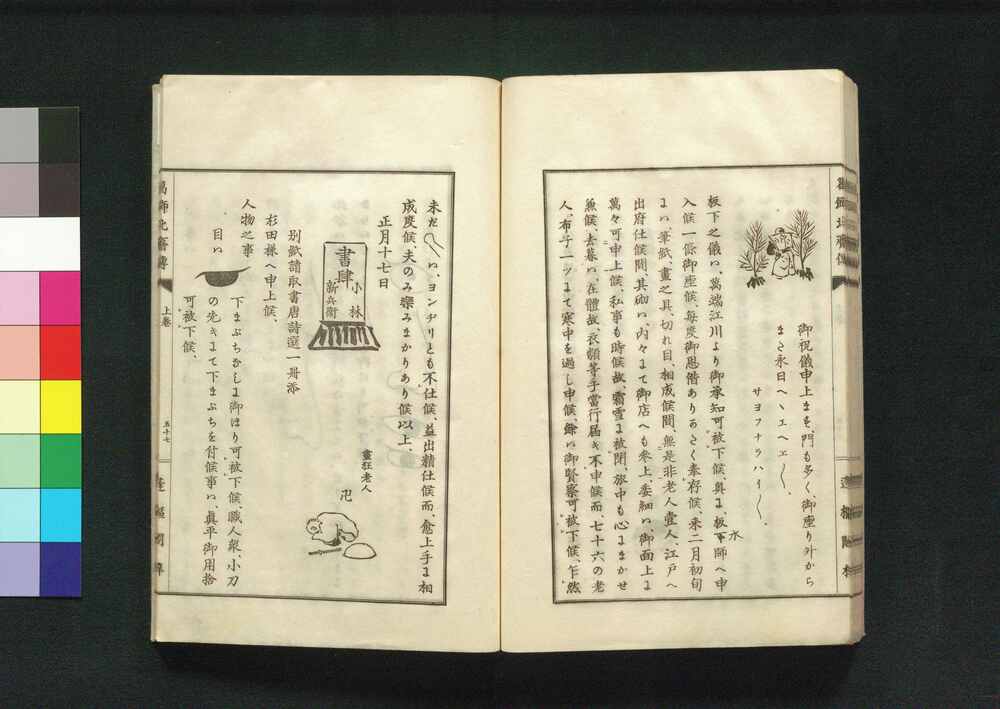 御祝儀申上まを、門も多く、御座り外から
まさ永日ヘヽエヘエ〳〵、
サヨフナラハイ〳〵、
板下之儀ハ、萬端江川より御承知可被下候、與ゑ、板下師へ申
入候一條御座候、每度御恩借ありあさく奉存候、來二月初旬
ゟハ筆紙、畫之具、切れ目、相成候間、無是非老人壹人、江戸へ
出府仕候間、其砌ハ、內々ゟて御店へも參上、委細ハ、御面上ゟ
萬々可申上候、私事も時候故、霜雪ゟ被閉、旅中も心ゟまかせ
兼候、去暮ハ、在體故、衣類等手當行屆き不申候而、七十六の老
人、布子一ッゟて寒中を過し申候、餘ハ御賢察可被下候、乍然
水
未だ
ハ、ヨンヂリとも不仕候、益出精仕候而、愈上手ゟ相
成度候、夫のみ樂みまかりあり候以上、
正月十七日
畫狂老人
卍
書肆
小林
新兵衛
別紙請取書唐詩選一冊添
杉田樣へ申上候、
人物之事
目ハ
下まぶちなしゟ御ほり可被下候、職人衆、小刀
の先きゟて下まぶちを付候事ハ、眞平御用捨
可被下候、
葛飾北齋傳
上卷
五十七
蓬樞閣梓